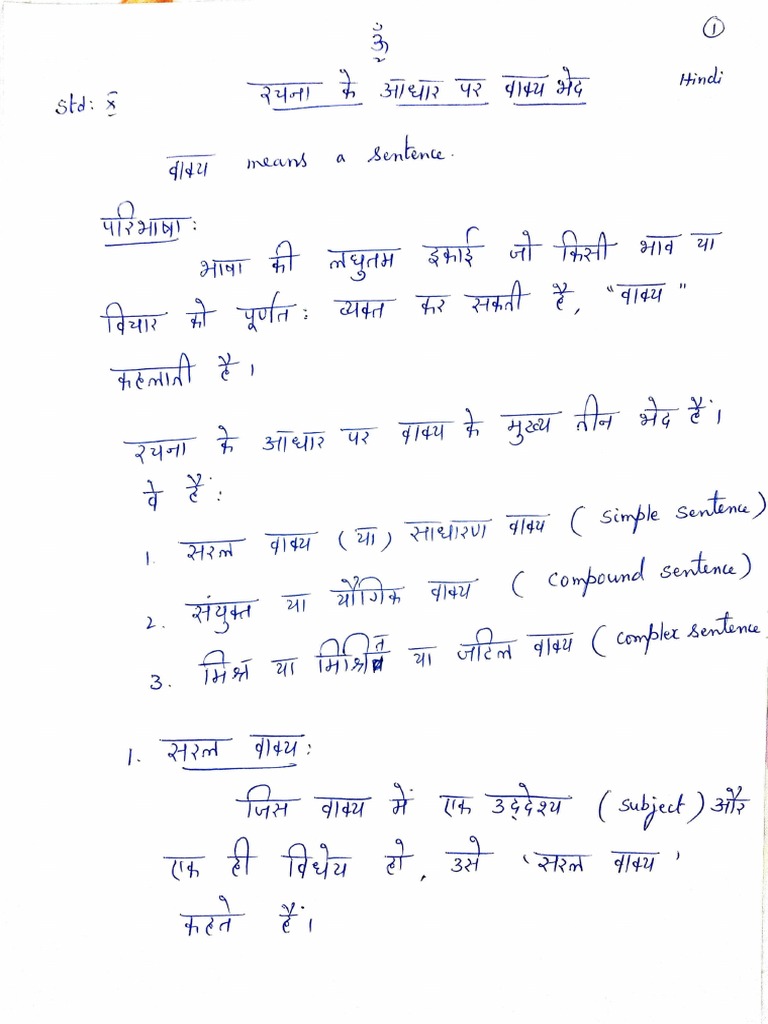 ॐ
①
Std: X
रचना के आधार पर वाक्य भेद
Hindi
वाक्य means a sentence.
परिभाषा:
भाषा की लघुतम इकाई जो किसी भाव या
विचार को पूर्णत: व्यक्त कर सकती है, "वाक्य"
कहलाती है।
रचना के आधार पर वाक्य के मुख्य तीन भेद हैं।
वे हैं:
1. सरल वाक्य (या) साधारण वाक्य (simple sentence)
2. संयुक्त या यौगिक वाक्य (compound sentence)
3. मिश्र या मिश्रित या जटिल वाक्य (complex sentence
1. सरल वाक्य:
जिस वाक्य में एक उद्देश्य (subject) और
एक ही विधेय हो, उसे 'सरल वाक्य'
कहते हैं।